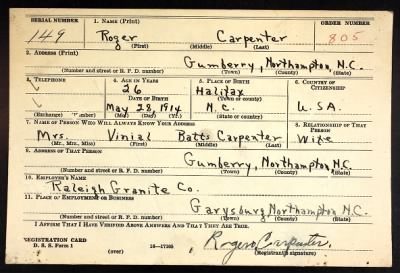 SERIAL NUMBER 1. NAME (Print) ORDER NUMBER
149 Roger Carpenter 805
(First) (Middle) (Last)
2. ADDRESS (Print)
Gumberry, Northampton, N.C.
(Number and street or R. F. D. number) (Town) (County) (State)
3. TELEPHONE 4. AGE IN YEARS 5. PLACE OF BIRTH 6. COUNTRY OF CITIZENSHIP
26 Halifax
DATE OF BIRTH (Town or county)
May 28, 1914 N.C. U.S.A.
(Exchange) (Number) (Mo.) (Day) (Yr.) (State or country)
7. NAME OF PERSON WHO WILL ALWAYS KNOW YOUR ADDRESS 8. RELATIONSHIP OF THAT PERSON
Mrs. Vinial Batts Carpenter Wife
(Mr., Mrs., Miss) (First) (Middle) (Last)
9. ADDRESS OF THAT PERSON
Gumberry, Northampton, N.C.
(Number and street or R. F. D. number) (Town) (County) (State)
10. EMPLOYER'S NAME
Raleigh Granite Co.
11. PLACE OF EMPLOYMENT OR BUSINESS
Garysburg, Northampton, N.C.
(Number and street or R. F. D. number) (Town) (County) (State)
I AFFIRM THAT I HAVE VERIFIED ABOVE ANSWERS AND THAT THEY ARE TRUE.
REGISTRATION CARD
D. S. S. Form 1 (over) 16—17105 (Registrant's signature)